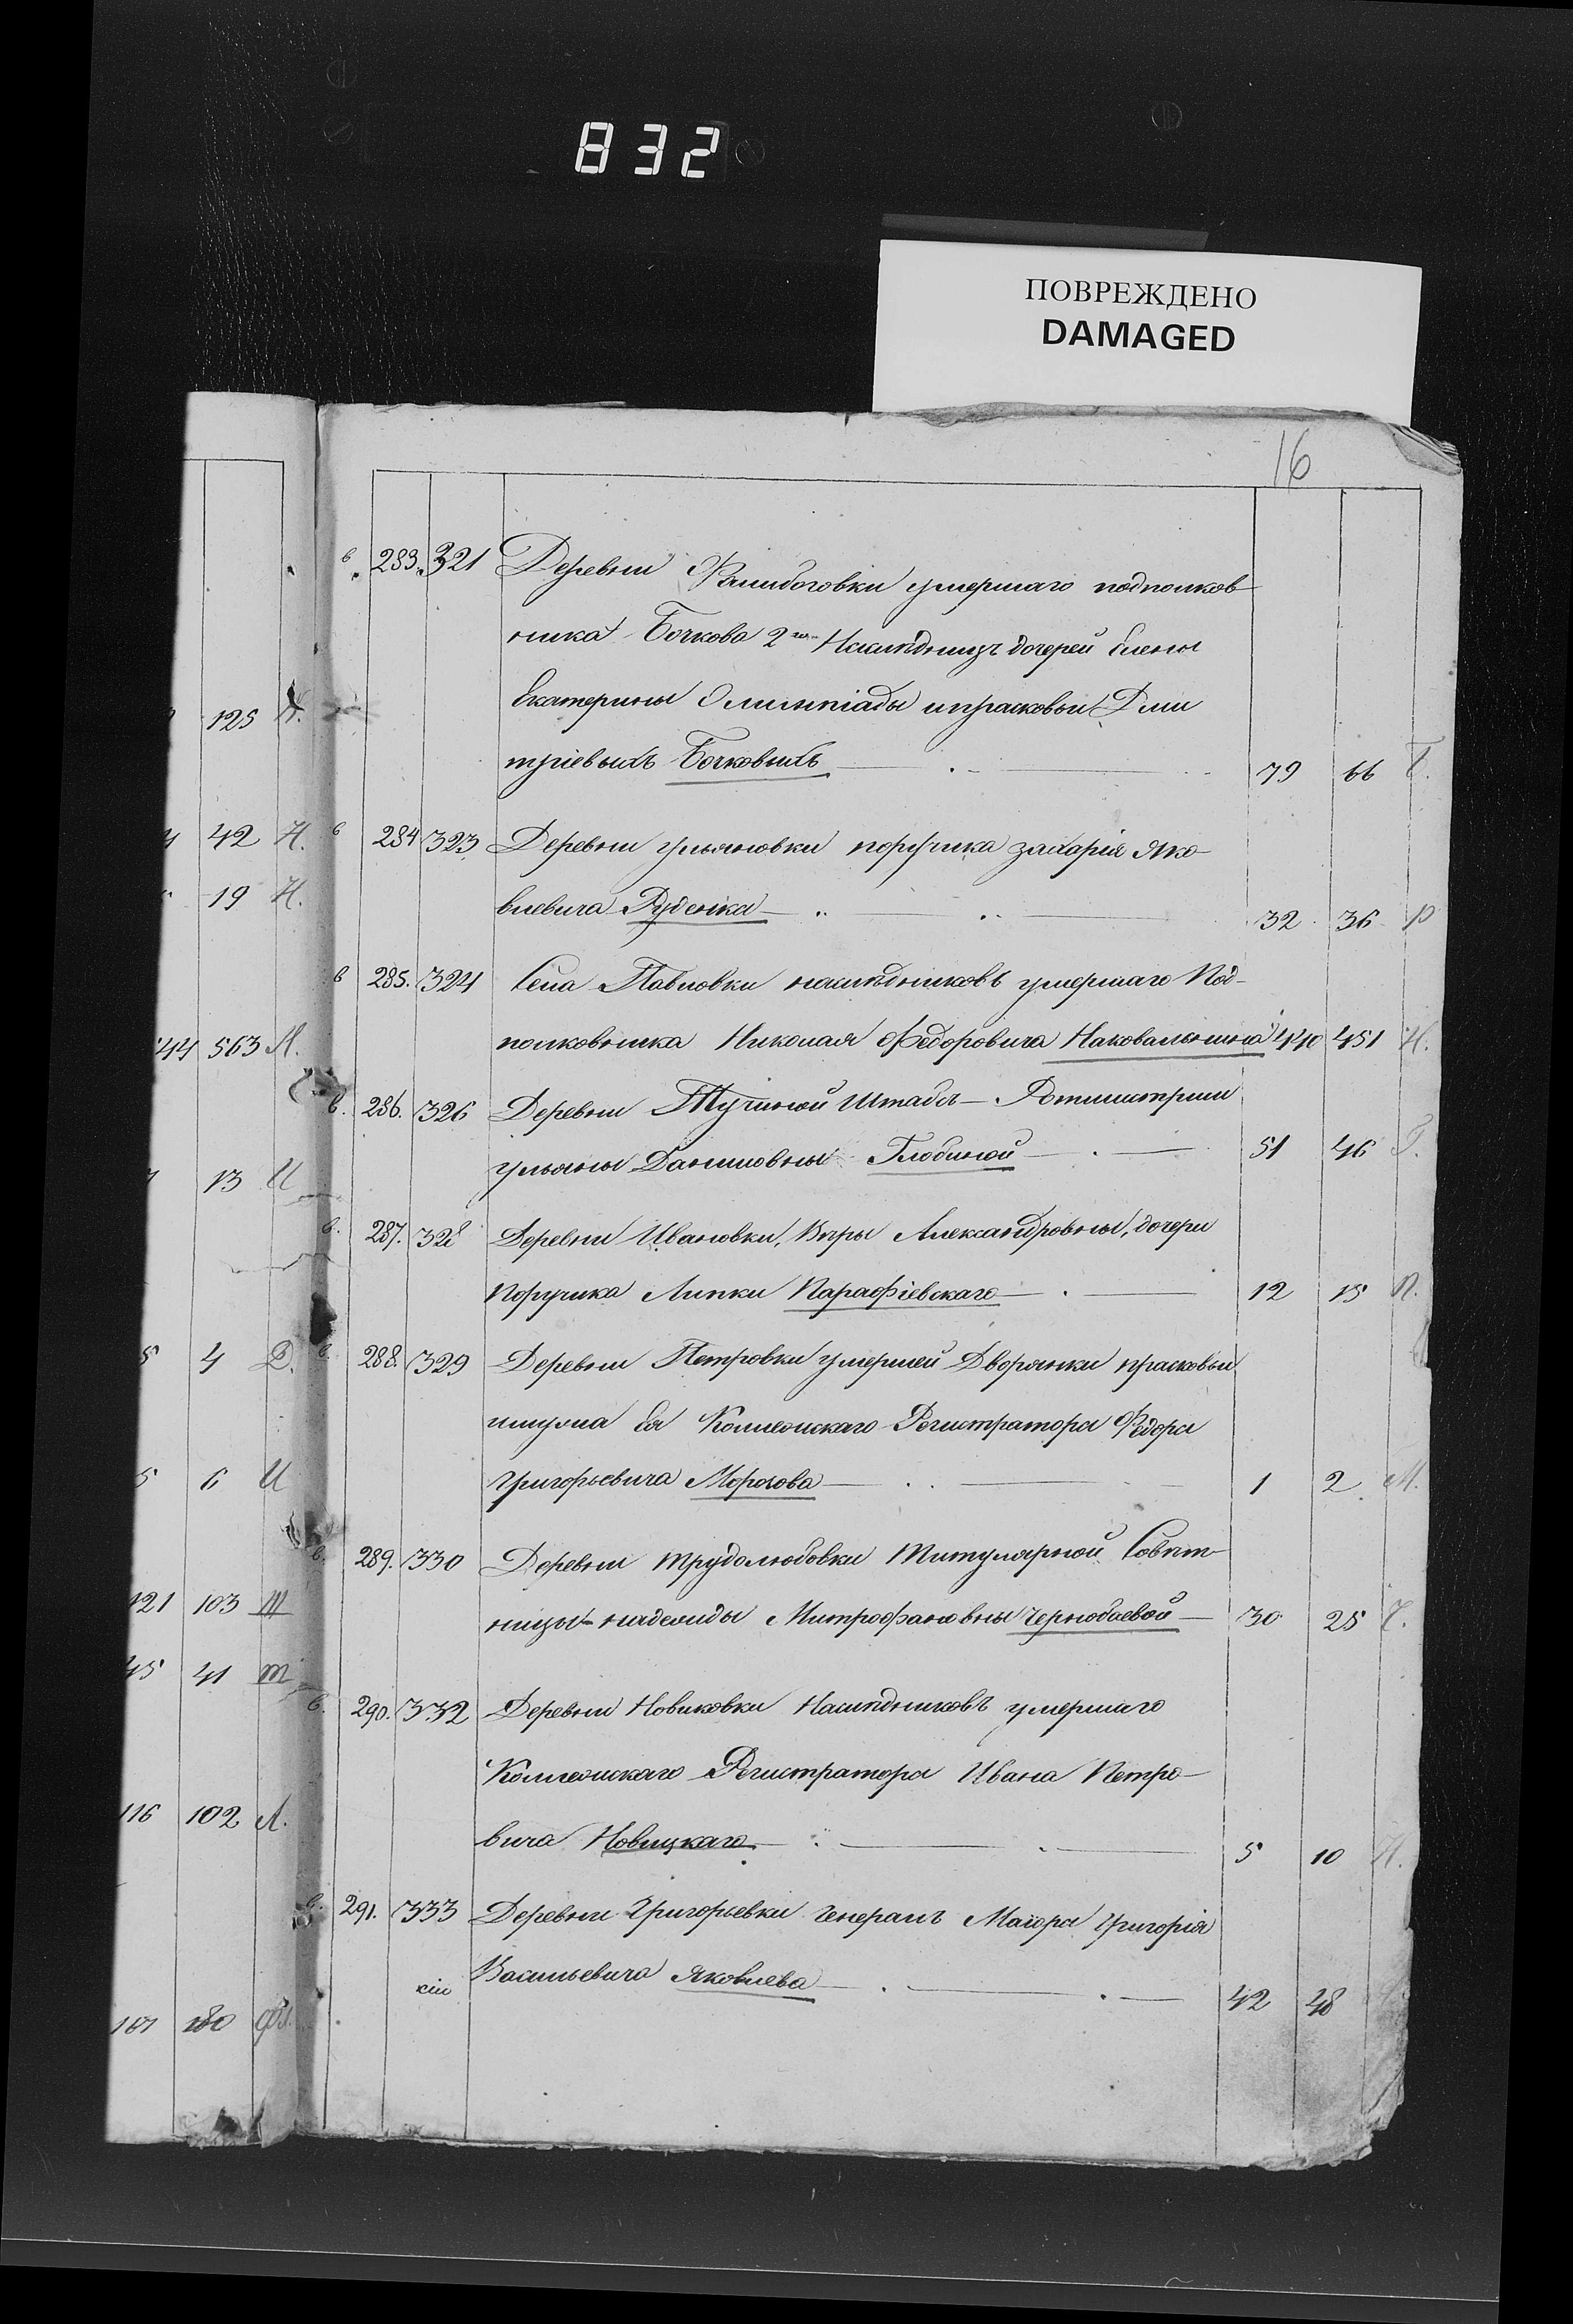 832
ПОВРЕЖДЕНО
DAMAGED
16
в. 283. 321 Деревни умершаго подполков-
ника Бочкова 2го Наслѣдницъ дочерей Елены
Екатерины Олимпіады и прасковьи Дми
тріевыхъ Бочковыхъ 79 66 Б.
125 Н.
42 Н. в 284 323 Деревни ульяновки поручика захарія Яко-
влевича Руденка 32 36 Р
19 Н.
в 285. 324 Села Павловки наслѣдниковъ умершаго Под-
полковника Николая Федоровича Наковальнина 440 451 Н.
44 563 М.
в. 286. 326 Деревни Штабъ-Ротмистрши
ульяны Даниловны Глобиной 51 46 Г.
13 И
в. 287. 328 Деревни Ивановки, Вѣры Александровны, дочери
Поручика Липки Парафіевскаго 12 15 П.
5 4 в. 288. 329 Деревни Петровки умершей Дворянки прасковьи
Коллежскаго Регистратора Федора
Григорьевича Морозова 1 2 М.
5 6 И
в. 289. 330 Деревни трудолюбовки Титулярной Совѣт-
ницы надежды Митрофановны Чернобаевой 30 25 Ч.
121 103 Ш
45 41 Т
в. 290. 332 Деревни Новиковки Наслѣдниковъ умершаго
Коллежскаго Регистратора Ивана Петро-
вича Новицкаго 5 10 Н.
116 102 Л.
291. 333 Деревни Григорьевки Генералъ Маіора Григорія
Васильевича Яковлева 42 48
180